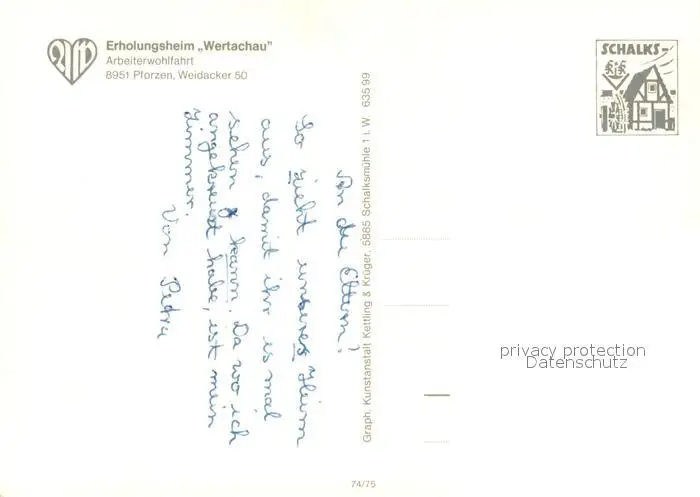 Erholungsheim „Wertachau"
Arbeiterwohlfahrt
8951 Pforzen, Weidacker 50
SCHALKS-
K&K
An die Eltern!
So sieht unseres "Heim
aus, damit ihr es mal
sehen kann. Da wo ich
angekreuzt habe, ist mein
Zimmer.
Von Petra
Graph. Kunstanstalt Kettling & Krüger, 5885 Schalksmühle 1 i. W 635 99
privacy protection
Datenschutz
74/75